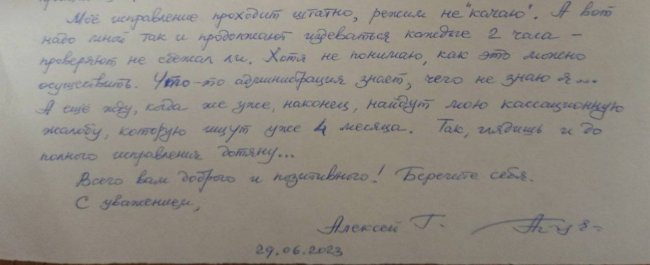 Моё исправление проходит штатно, режим не "качаю". А вот
надо мной так и продолжают издеваться каждые 2 часа -
проверяют не сбежал ли. Хотя не понимаю, как это можно
осуществить. Что-то администрация знает, чего не знаю я...
А ещё жду, когда же уже, наконец, найдут мою кассационную
жалобу, которую ищут уже 4 месяца. Так, глядишь и до
полного исправления дотяну...
Всего вам доброго и позитивного! Берегите себя.
С уважением,
Алексей Г.
29.06.2023